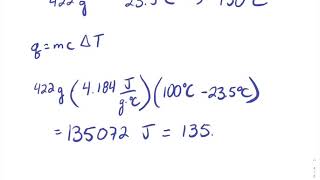 422g 23.5°C → 100°C
q = mc ΔT
422g (4.184 J/g·°C)(100°C - 23.5°C)
= 135072 J = 135.